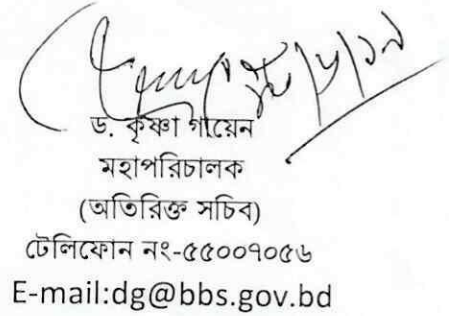 ড. কৃষ্ণা গায়েন
মহাপরিচালক
(অতিরিক্ত সচিব)
টেলিফোন নং-৫৫০০৭০৫৬
E-mail:dg@bbs.gov.bd